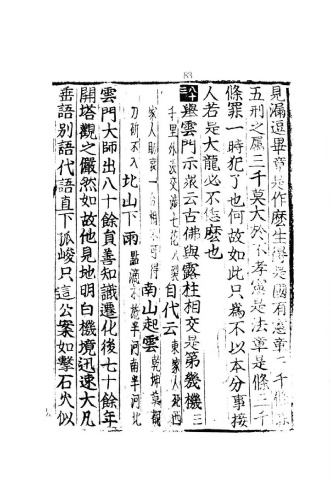 83
見漏逗畢竟是作麼生得是國有憲章三千條
五刑之屬三千莫大於不孝憲是法章是條三千
條罪一時犯了也何故如此只為不以本分事接
人若是大龍必不恁麼也
八十三舉雲門示衆云古佛與露柱相交是第幾機三
千里外沒交涉七花八裂自代云東家人死西
家人助哀一合相不可得南山起雲乾坤莫覩
刀斫不入北山下雨點滴不施半河南半河北
雲門大師出八十餘員善知識遷化後七十餘年
開塔觀之儼然如故他見地明白機境迅速大凡
垂語別語代語直下孤峻只這公案如擊石火似